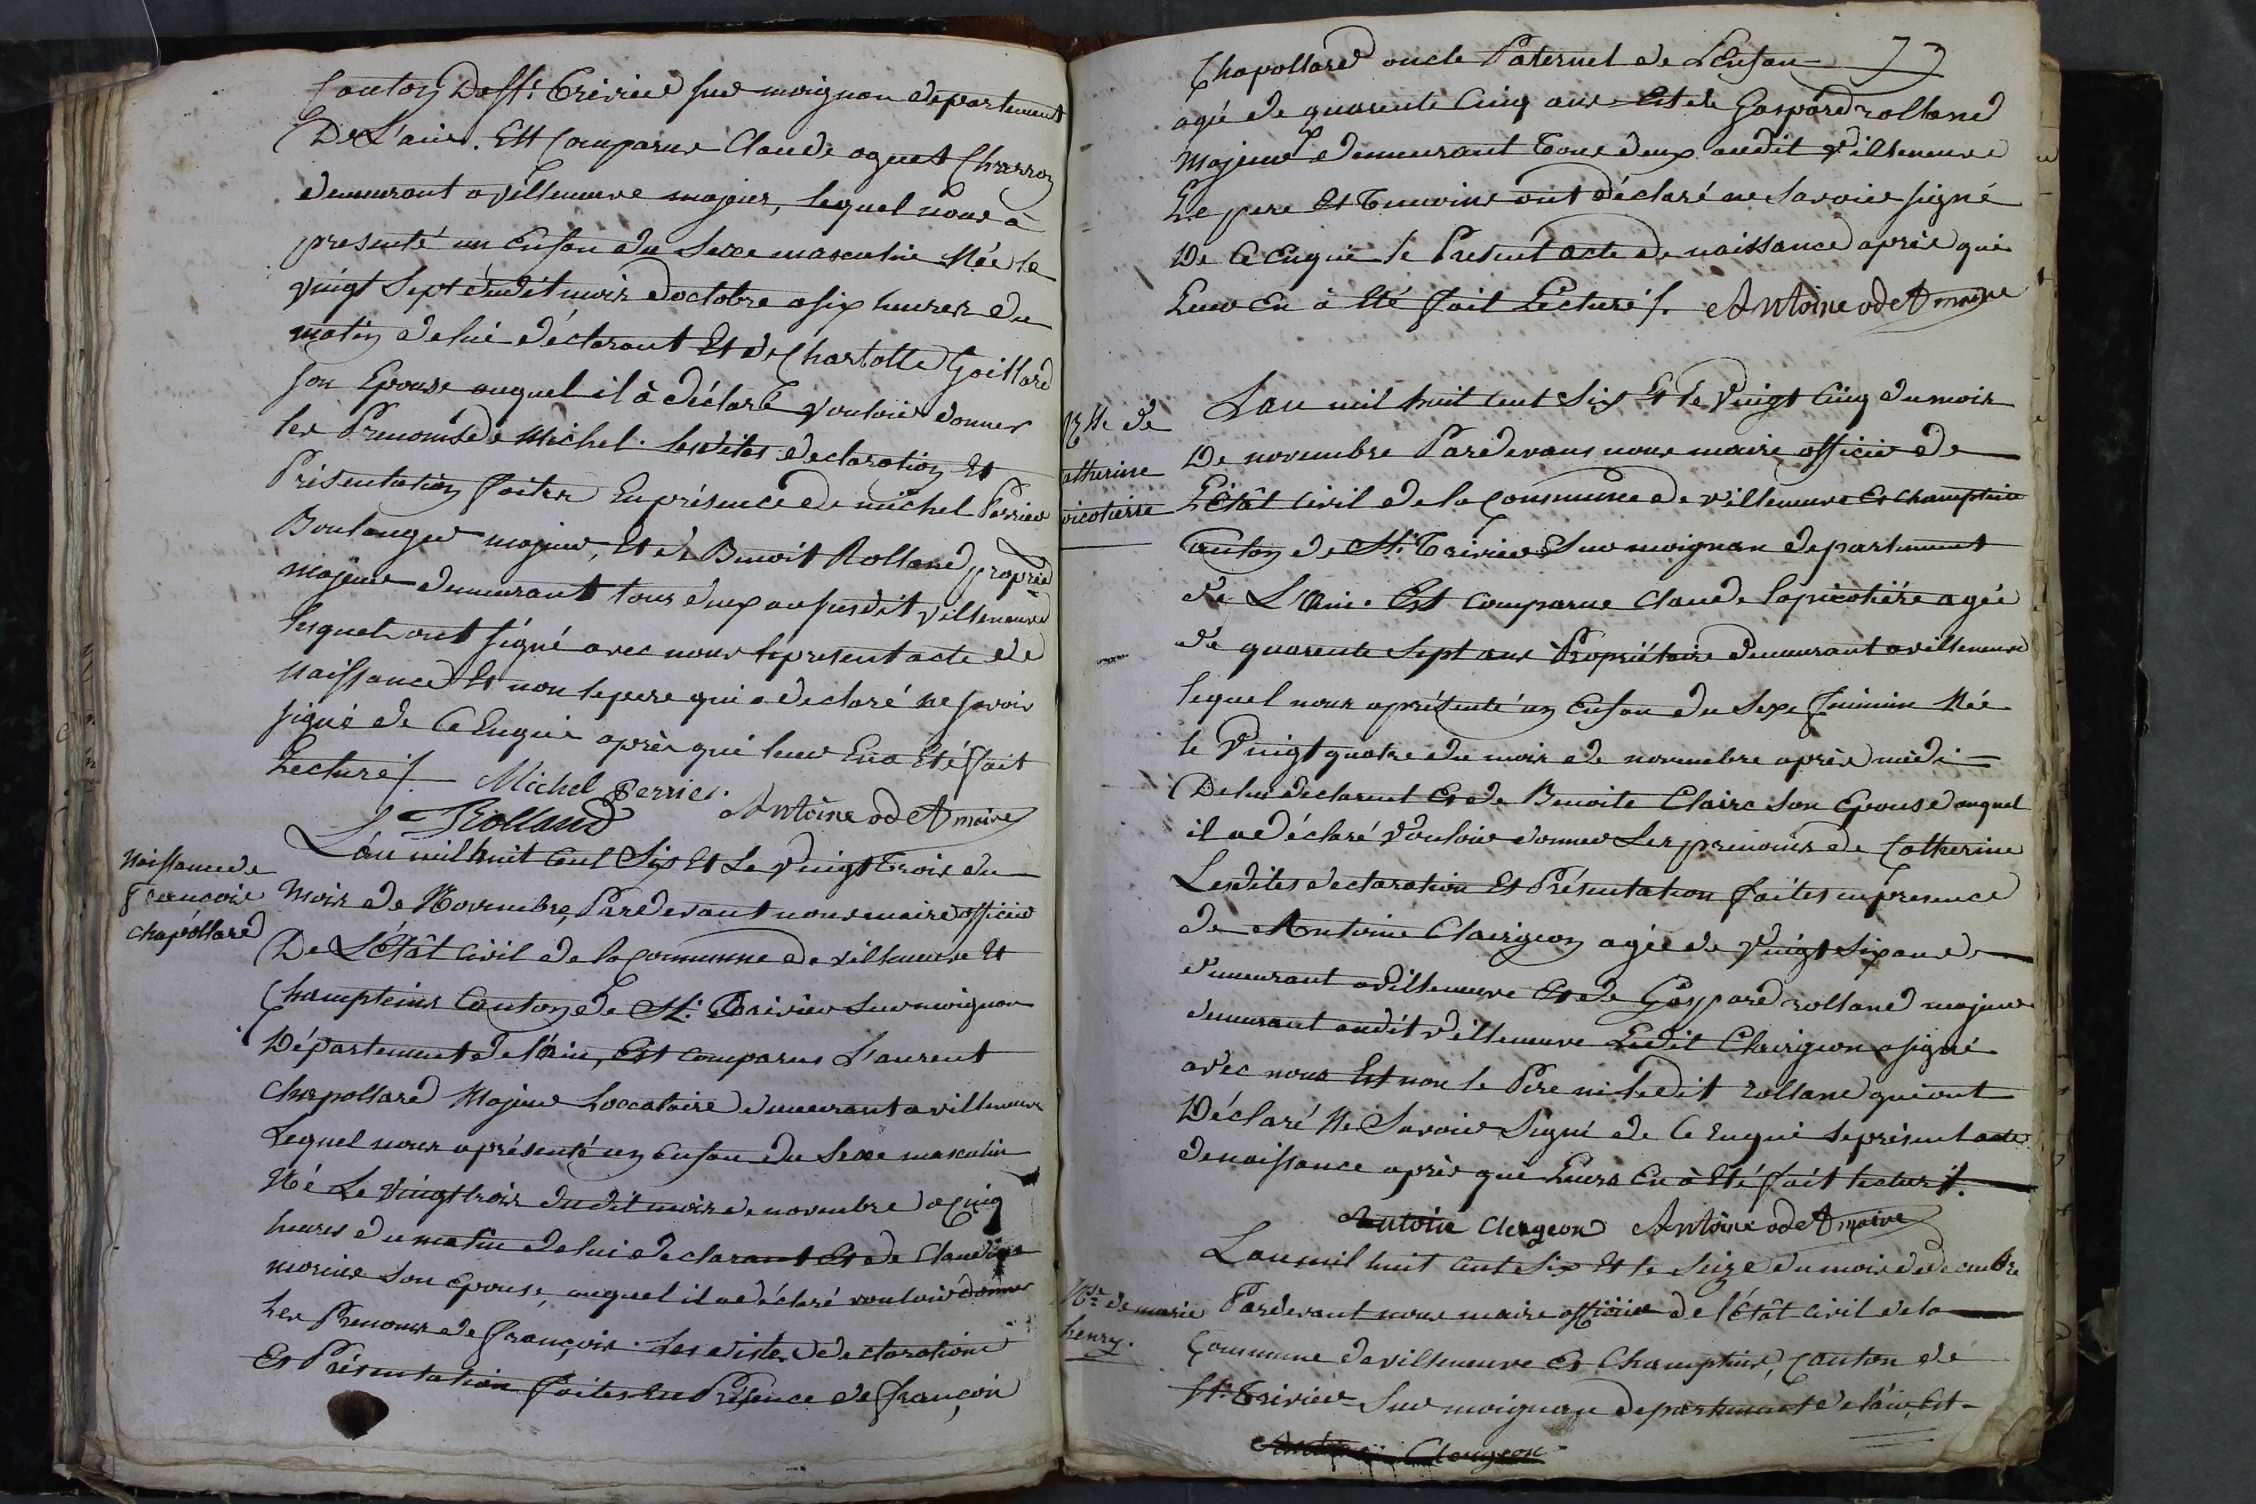 Canton de St: Trivier sur moignan departement
De L'ain. Est Comparue Claude oguet Charron
demeurant a villeneuve majeur, lequel nous à
presenté un Enfan du Sexe masculin Née le
vingt Sept dudit mois d'octobre a six heures du
matin de lui déclarant Et de Charlotte Gaillard
son Epouse auquel il à déclaré vouloir donner
les Prenoms de Michel. Les dites declaration Et
Présentation faites En présence de michel Perrier
Boulanger majeur, Et de Benoit Rolland proprre
majeur demeurant tous deux au susdit villeneuve
lesquels ont signé avec nous le present acte de
naissance Et non le pere qui a declaré ne savoir
signé de Ce Enquis après qui leur En a Eté fait
Lecture /.
Michel Perrier.
Rolland
Antoine odet maire
Naissance de
francois
chapollard
L'an mil huit Cent Six Et Le Vingt trois du
mois de Novembre, Pardevant nous maire officier
De L'état Civil de la Commune de villeneuve Et
Champteins Canton de St: Trivier sur moignan
Département de l'ain, Est comparus Laurent
chapollard Majeur Loccataire demeurant a villeneuve
Lequel nous a présenté un Enfan du Sexe masculin
Né Le Vingt trois dudit mois de novembre a Cinq
heures du matin de lui declarant Et de Claudine
morier son Epouse, auquel il a déclaré vouloir donner
Les Prenoms de françois. Les dites declarations
Et Présentation faites En Présence de françois
77
Chapollard oncle Paternel de L'enfan
agé de quarente Cinq ans Et de Gaspard rolland
Majeur demeurant tous deux audit Villeneuve
Le pere Et temoins ont déclaré ne savoir signé
De Ce Enquis le Present acte de naissance après qui
Leur En à Eté fait Lecture /. Antoine odet maire
Nce de
atherine
picotierre
L'an mil huit cent Six Et le Vingt Cinq du mois
De novembre Pardevans nous maire officier de
L'état Civil de la Commune de villeneuve Et champtein
canton de St: Trivier Sur moignan departement
de L'ain. Est Comparue Claude lapicotière agée
de quarente Sept ans Propriétaire demeurant a villeneuve
lequel nous a présenté un Enfan du Sexe feminin Née
le Vingt quatre du mois de novembre après midi
De lui declarent Et de Benoite Claire Son Epouse auquel
il a déclaré Vouloir donner Les prenoms de Catherine
Lesdites declaration Et Présentation faites en presence
de Antoine Clairgeon agée de Vingt Six ans de
demeurant a villeneuve Et de Gaspard rolland majeur
demeurant audit villeneuve Ledit Clairgeon a signé
avec nous Et non le Pere ni ledit rolland qui ont
Déclaré Ne Savoir Signé de Ce Enquis le présent acte
de naissance après qui Leurs En à Eté fait lecture /.
Antoine Clergeon Antoine odet maire
Nce de marie
henry.
L'an mil huit Cent Six Et le Seize du mois de decembre
Pardevant nous maire officier de l'état Civil de la
Commune de villeneuve Et Champteins, Canton de
St: Trivier Sur moignan departement de l'ain, Est
Clergeon